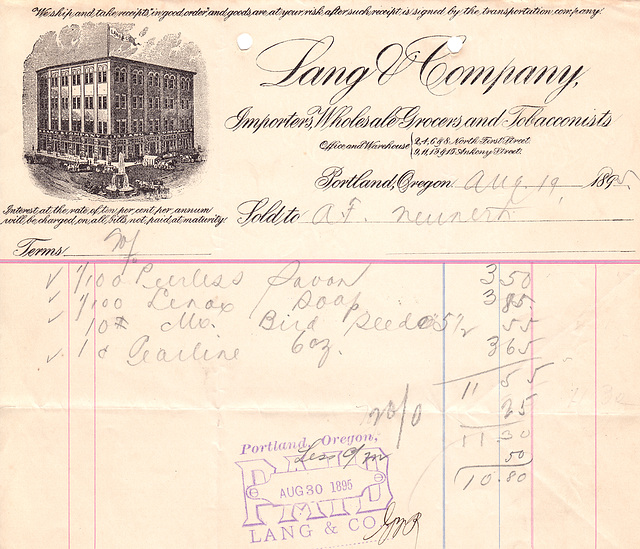 We ship and take receipts, in good order, and goods are at your risk after such receipt is signed by the transportation company.
Lang & Company,
Importers, Wholesale Grocers, and Tobacconists
Office and Warehouse 2, 4, 6 & 8 North First Street.
9, 11, 13 & 15 Ankeny Street.
Portland, Oregon. Aug. 19 1895
Interest at the rate of ten per cent per annum
will be charged on all bills not paid at maturity.
Sold to A.F.
Terms
✓ 1/100 Peerless Savon 3 50
✓ 1/100 Lenox Soap 3 85
✓ 10# Mx. Bird Seed @ 5½ 55
✓ 1 c Pearline 6oz. 3 65
11 55
25
11 30
50
10.80
Portland, Oregon,
Less
PAID
AUG 30 1895
LANG & CO.